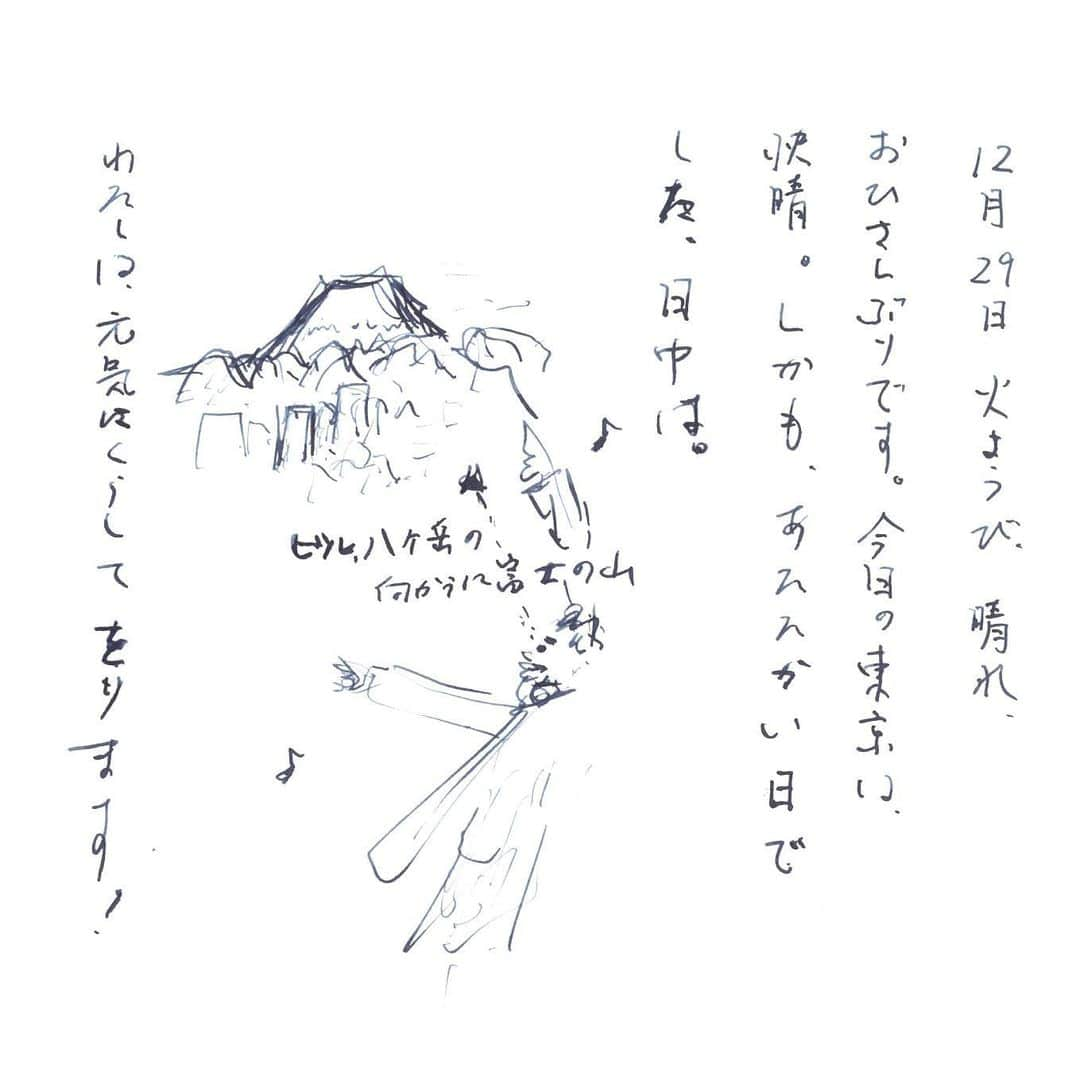 12月29日 火ようび、晴れ、
おひさしぶりです。今日の東京は、
快晴。しかも、あたたかい日で
した、日中は。
ビル、八ヶ岳の
向かうに富士の山
わたしは、元気にくらしてをります!